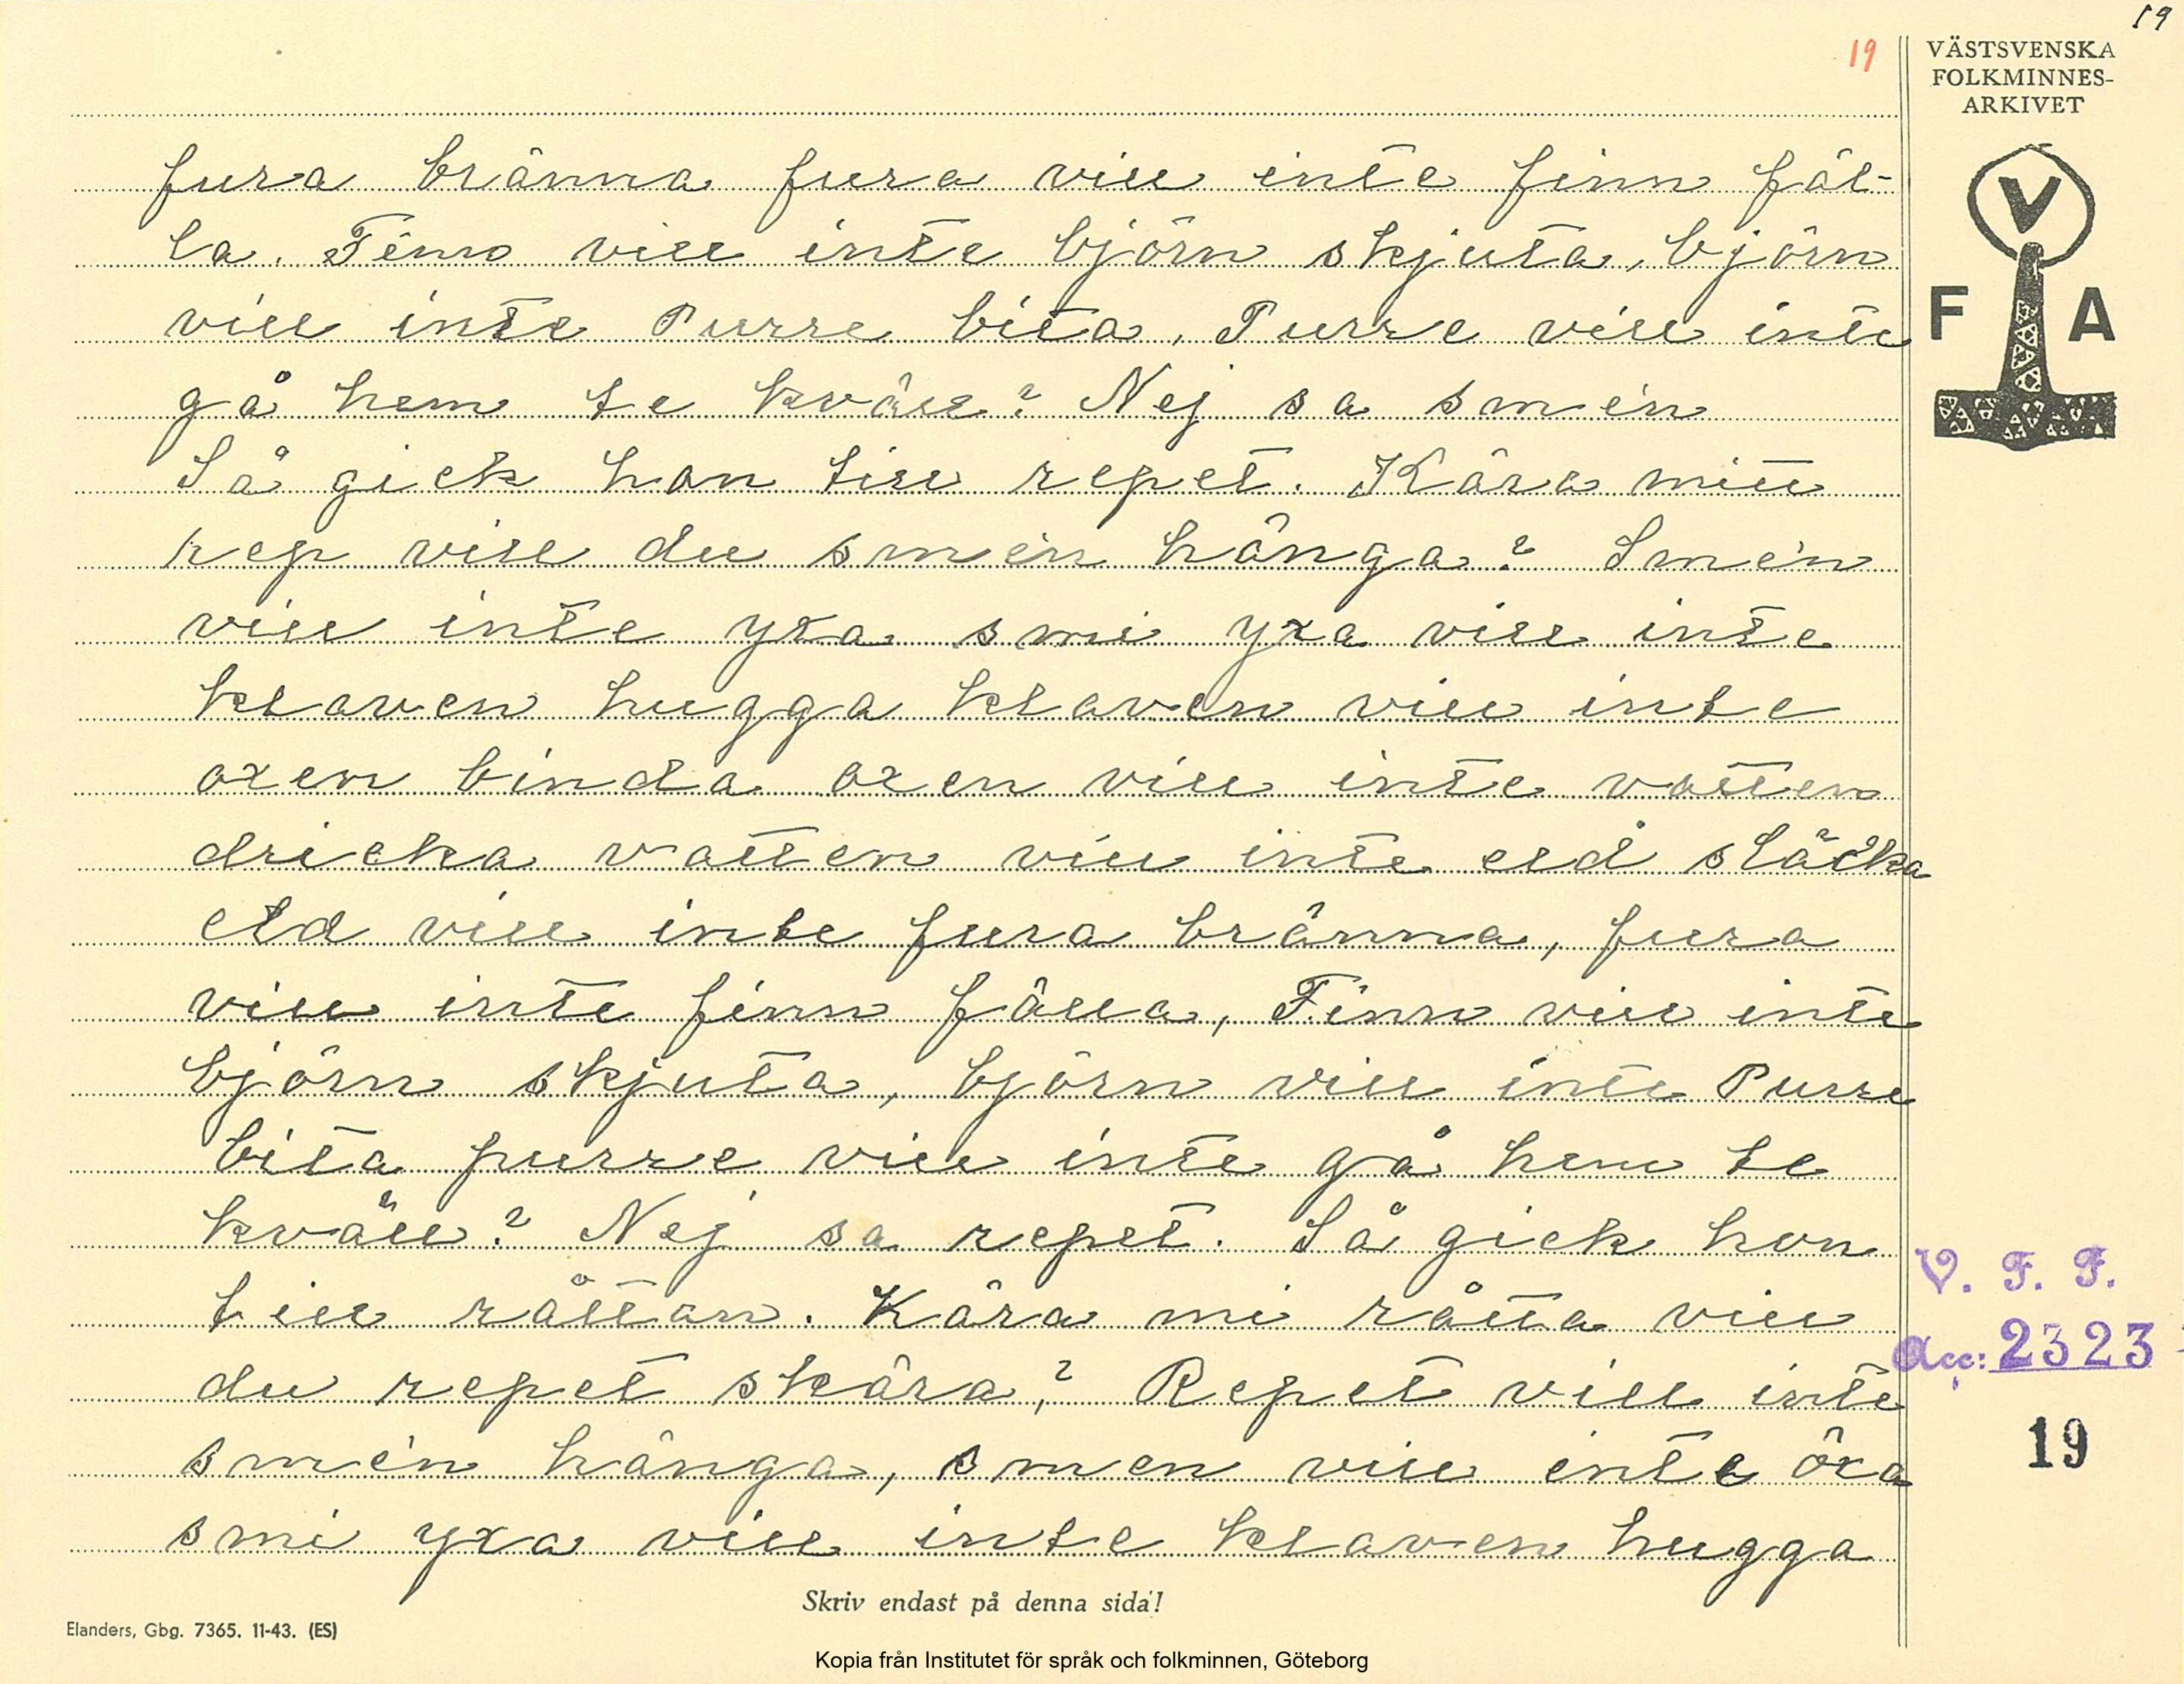 19
19
VÄSTSVENSKA
FOLKMINNES-
ARKIVET
V
F A
fura bränna fura vill inte finn fäl-
la. Finn vill inte björn skjuta, björn
vill inte Purre bita, Purre vill inte
gå hem te kväll? Nej sa smén
Så gick hon till repet. Kära mitt
rep vill du smén hänga? Smén
vill inte yxa smi yxa vill inte
klaven hugga klaven vill inte
oxen binda oxen vill inte vatten
dricka vatten vill inte eld släcka
eld vill inte fura bränna, fura
vill inte finn fälla, Finn vill inte
björn skjuta, björn vill inte Purre
bita purre vill inte gå hem te
kväll? Nej sa repet. Så gick hon
till råttan. Kära mi råtta vill
du repet skära? Repet vill inte
smén hänga, smen vill inte öxa
smi yxa vill inte klaven hugga
V. F. F.
Acc: 2323
19
Skriv endast på denna sida!
Elanders, Gbg. 7365. 11-43. (ES)
Kopia från Institutet för språk och folkminnen, Göteborg